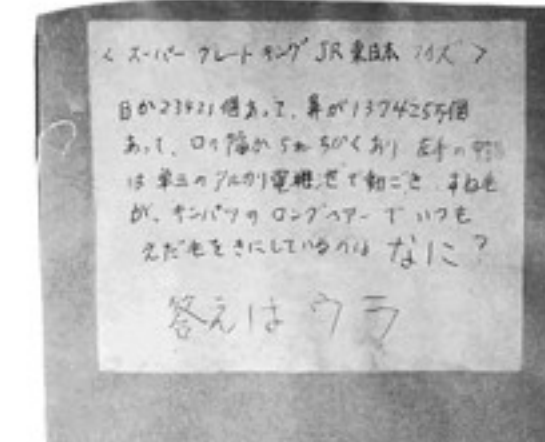 < スーパー グレートキング JR東日本 クイズ >
目が23421個あって、鼻が1374255個
あって、口の幅が5 あり 左手の
は単三のアルカリ電池で動ごき すね毛
が、キンパツのロングヘアーでいつも
えだ毛をきにしているのは なに?
答えはウラ